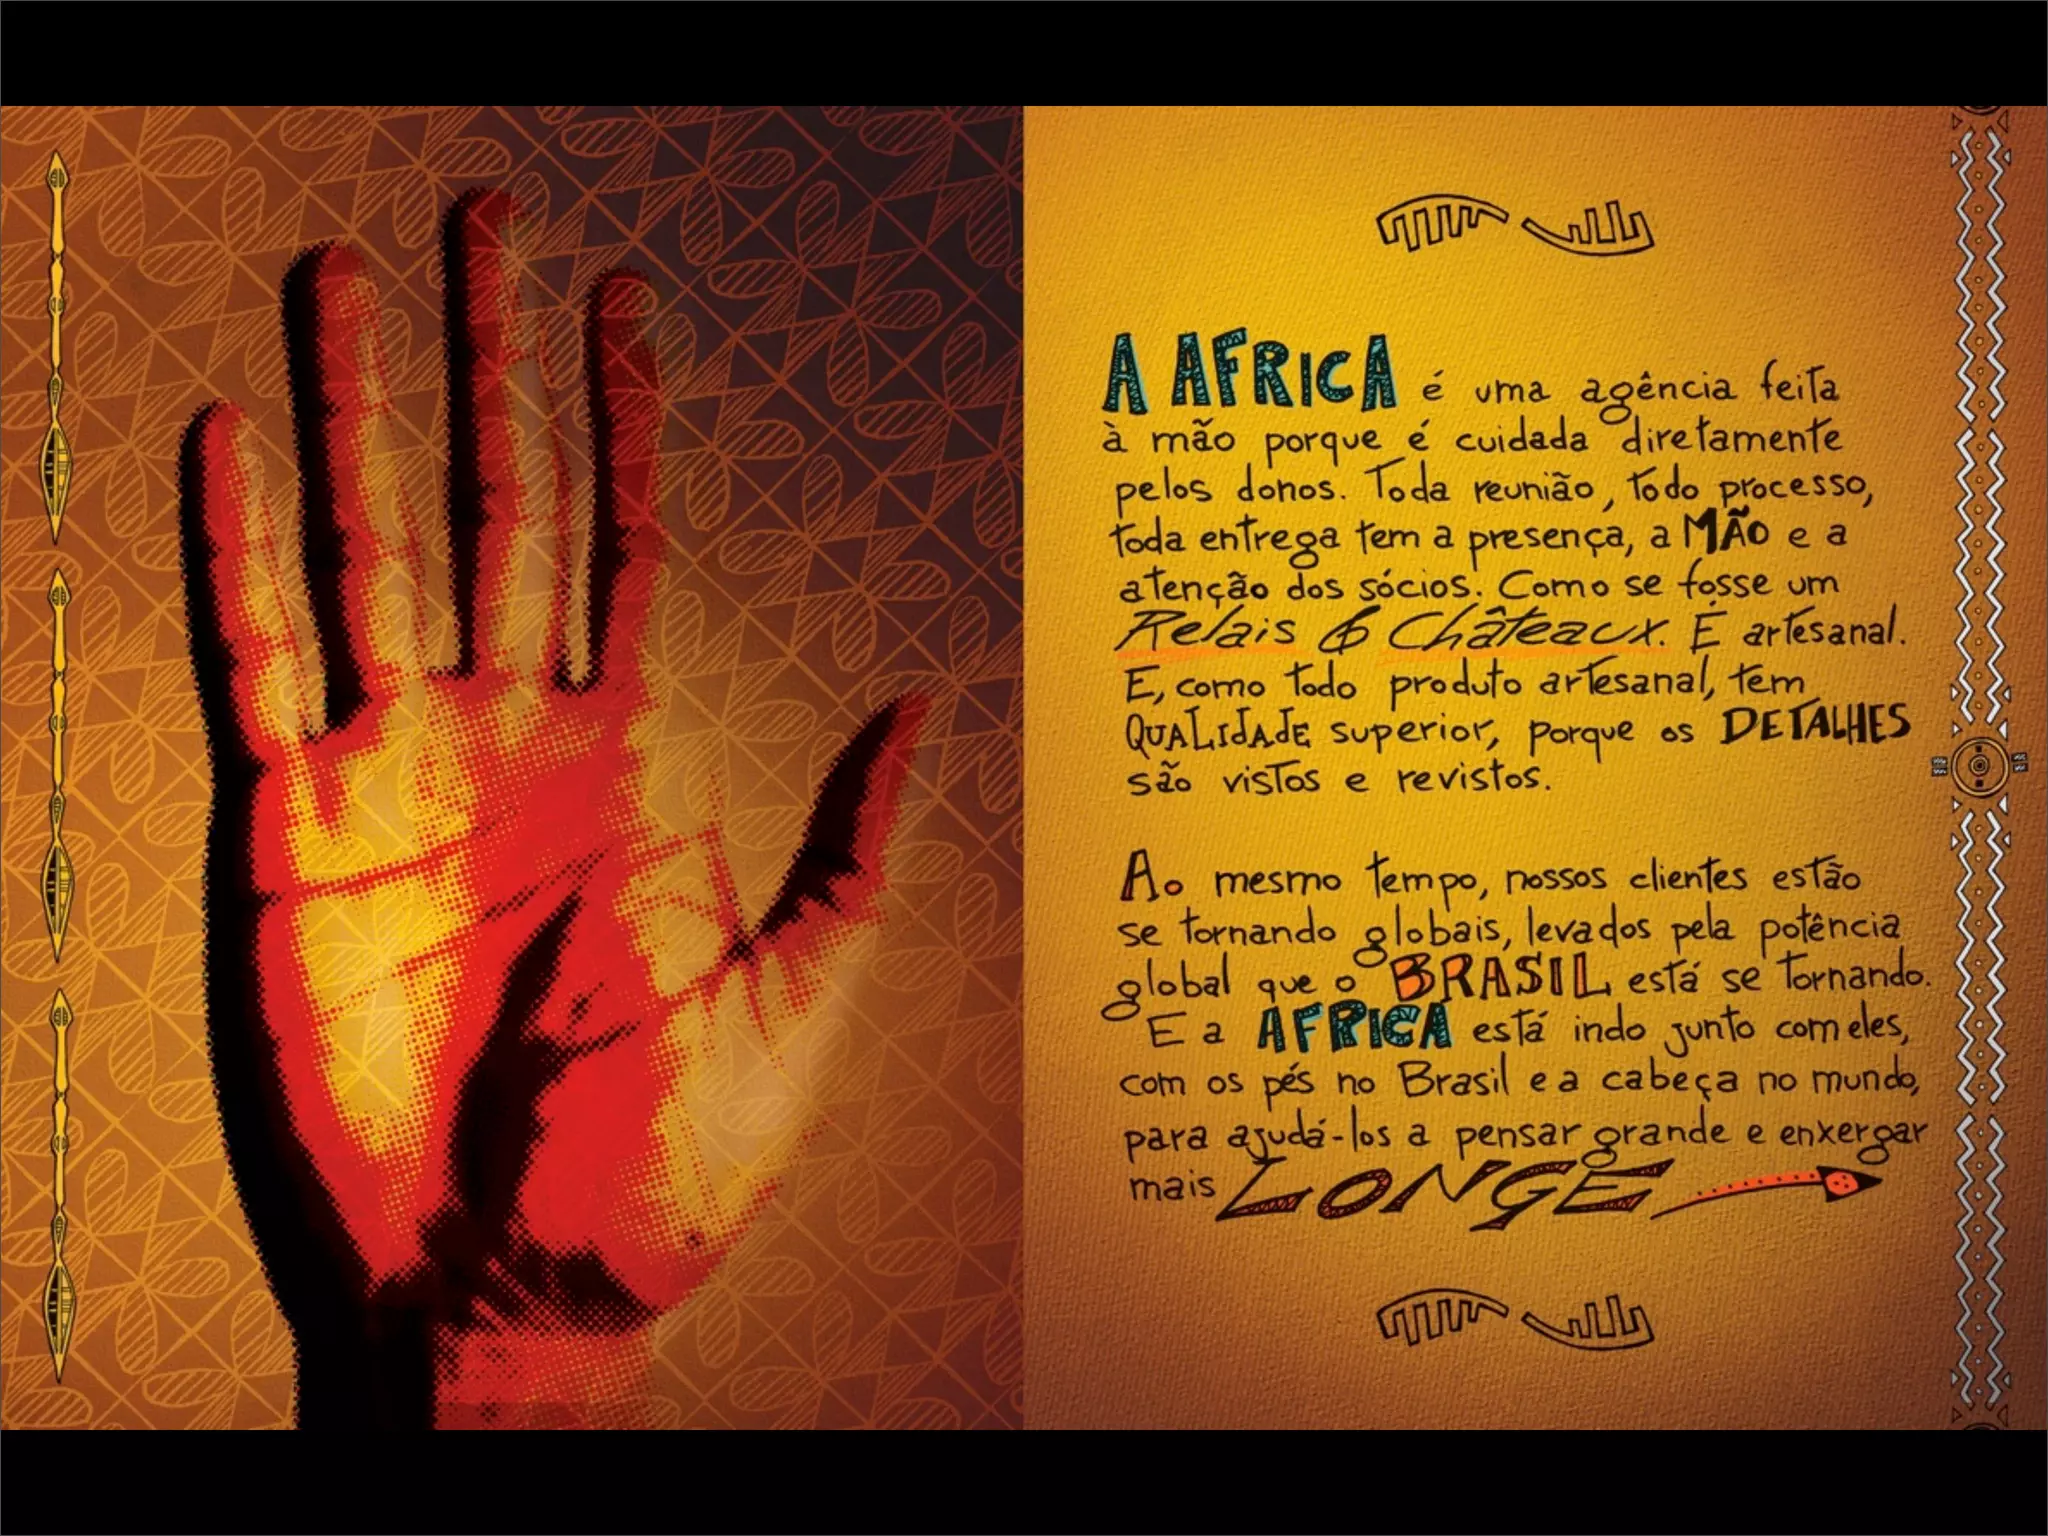 A AFRICA é uma agência feita
à mão porque é cuidada diretamente
pelos donos. Toda reunião, todo processo,
toda entrega tem a presença, a MÃO e a
atenção dos sócios. Como se fosse um
Relais & Châteaux. É artesanal.
E, como todo produto artesanal, tem
QUALIdAdE superior, porque os DETALHES
são vistos e revistos.
Ao mesmo tempo, nossos clientes estão
se tornando globais, levados pela potência
global que o BRASIL está se tornando.
E a AFRICA está indo junto com eles,
com os pés no Brasil e a cabeça no mundo,
para ajudá-los a pensar grande e enxergar
mais LONGE